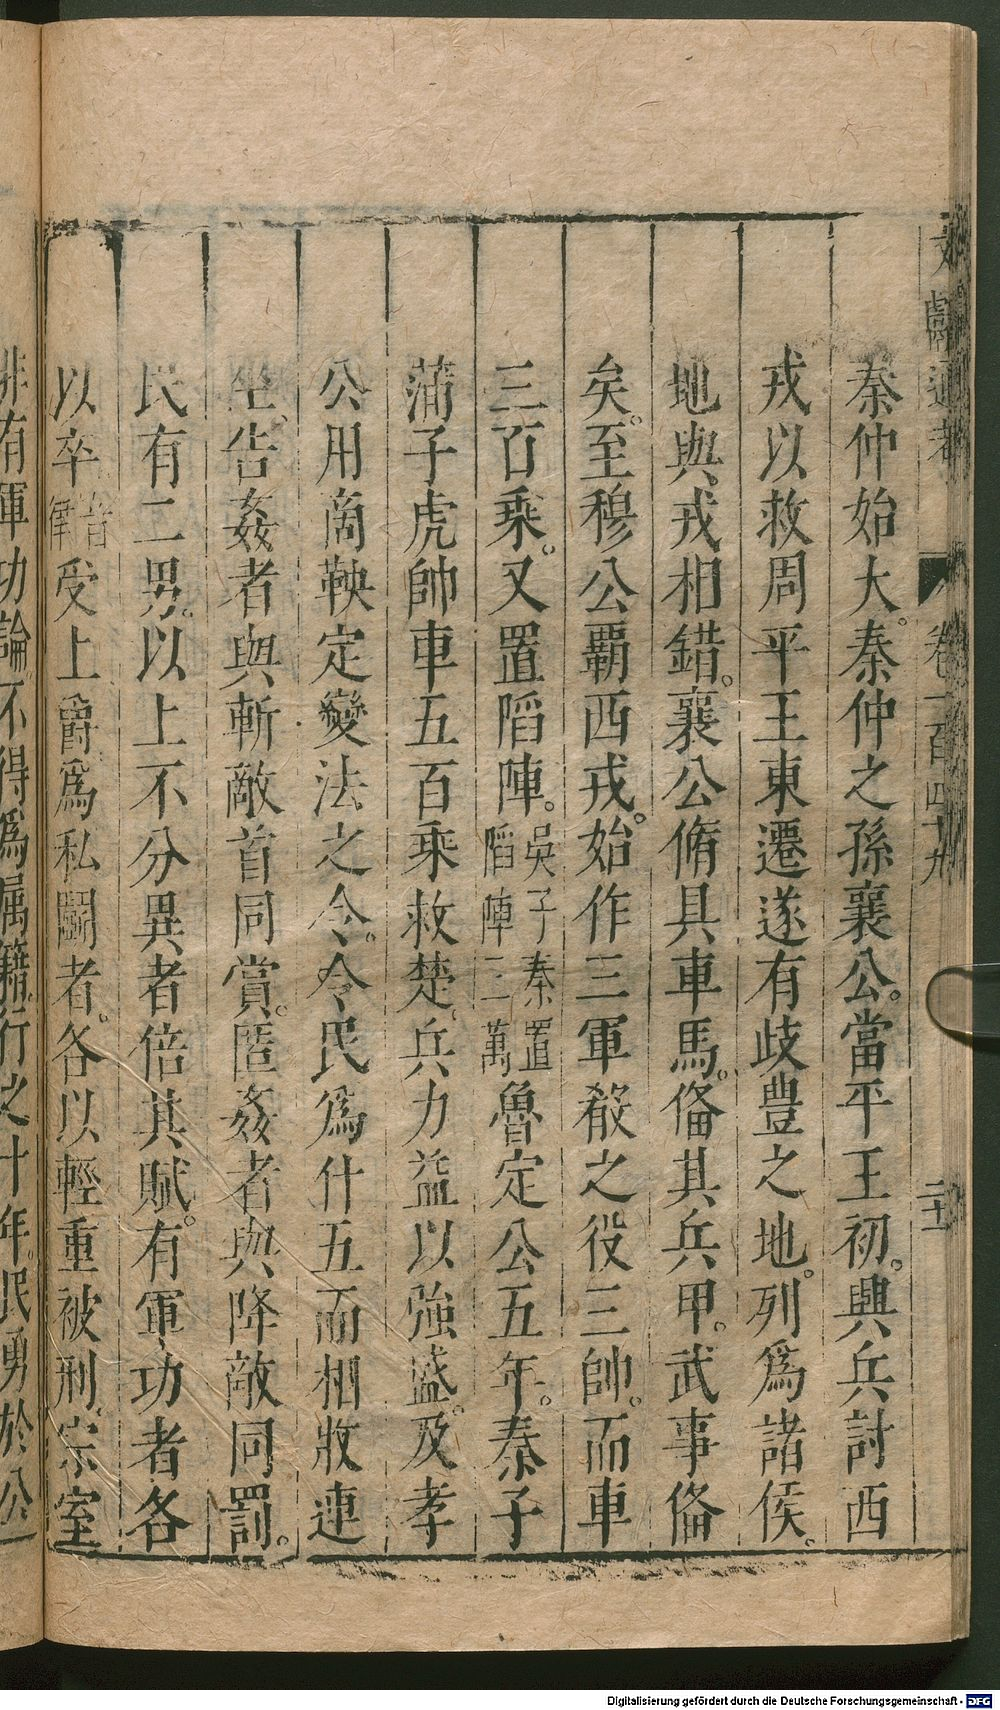 文獻通考 卷一百四十九 二十一
秦仲始大。秦仲之孫襄公。當平王初。興兵討西
戎以救周平王東遷遂有歧豊之地。列爲諸侯。
地與戎相錯。襄公脩具車馬。俻其兵甲。武事俻
矣。至穆公覇西戎。始作三軍殽之役三帥。而車
三百乘。又置陷陣。吳子秦置陷陣三萬魯定公五年。秦子
蒲子虎帥車五百乘救楚。兵力益以強盛。及孝
公用商鞅定變法之令。令民爲什五而相收連
坐。告姦者與斬敵首同賞。匿姦者與降敵同罰。
民有二男。以上不分異者倍其賦。有軍功者各
以卒音律受上爵爲私鬬者。各以輕重被刑。宗室
非有軍功論不得爲屬籍。行之十年。民勇於公
Digitalisierung gefördert durch die Deutsche Forschungsgemeinschaft - DFG